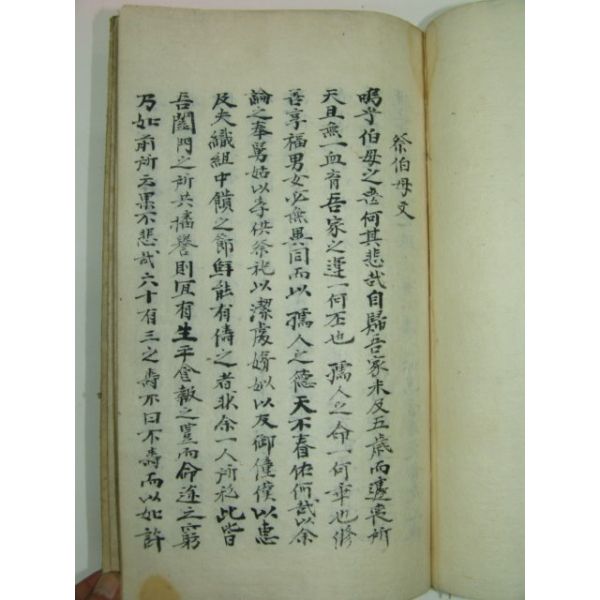 祭伯母文
嗚乎伯母之喪何其悲哉自歸吾家未及五歲而遽喪所
天且無一血育吾家之運一何否也孺人之命一何窮也脩
善享福男女必無異同而以孺人之德天不眷佑何哉以余
論之奉舅姑以孝供祭祀以潔處婿姒以友御僮僕以惠
及夫織組中饋之節鮮能有儔之者非余一人所私此皆
吾闔門之所共播譽則宜有生平食報之豊而命途之窮
乃如前所云累不悲哉六十有三之壽不曰不壽而以如許